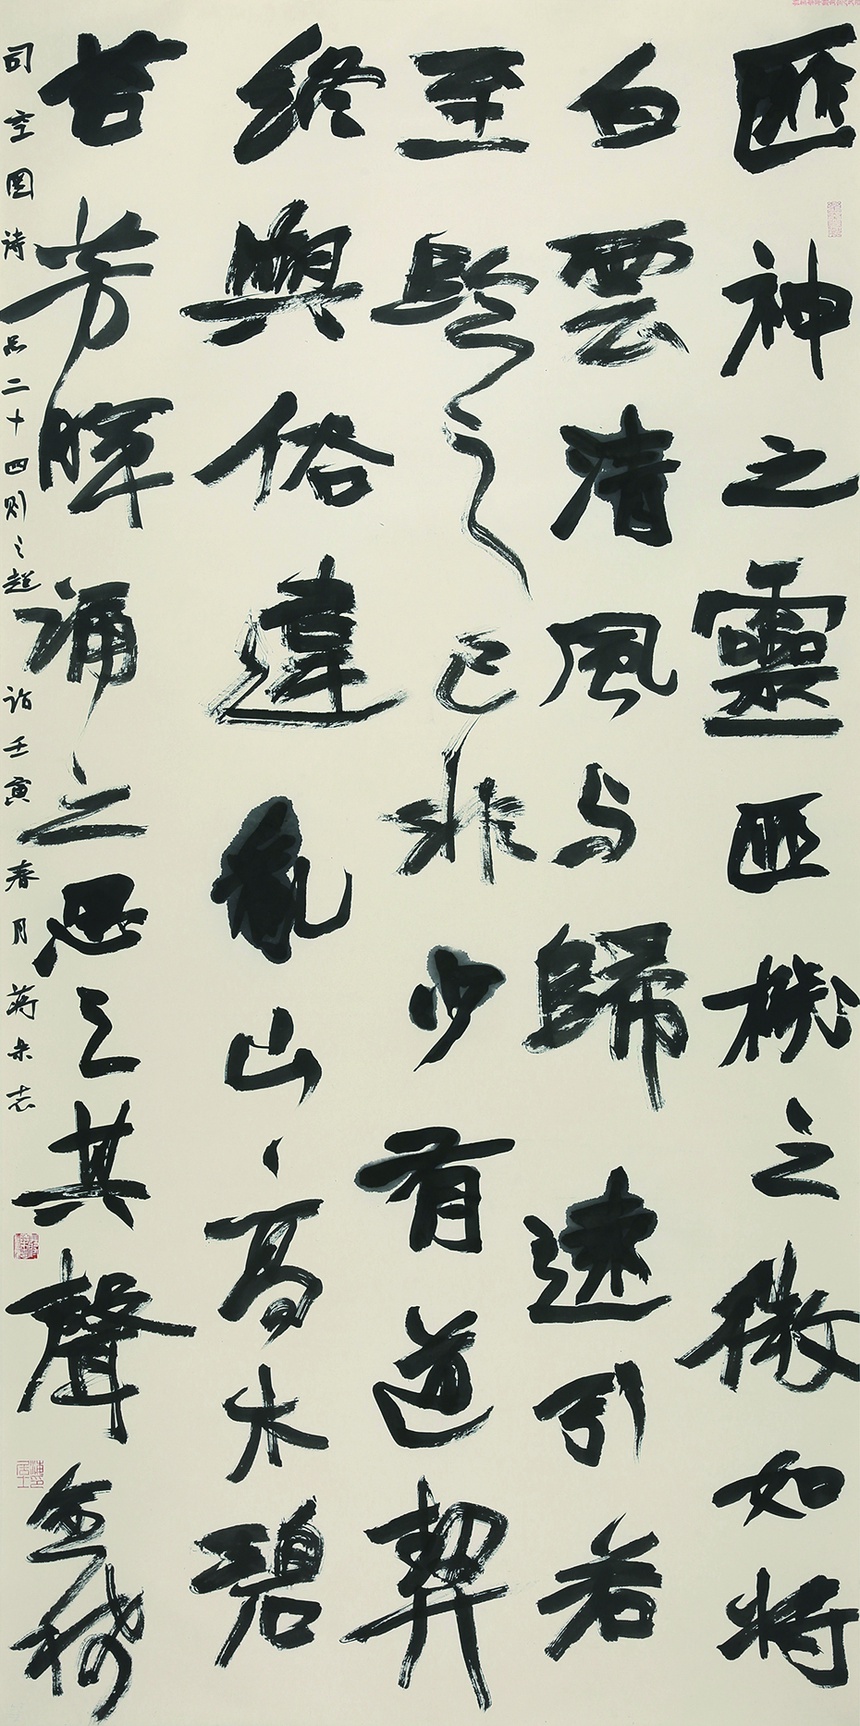 匪神之靈匪機之微如將
白雲清風与歸遠引若
至臨之已非少有道契
終與俗違亂山高木碧
苔芳暉誦之思之其聲愈稀
司空圖詩品二十四則之超詣壬寅春月蔣朱志